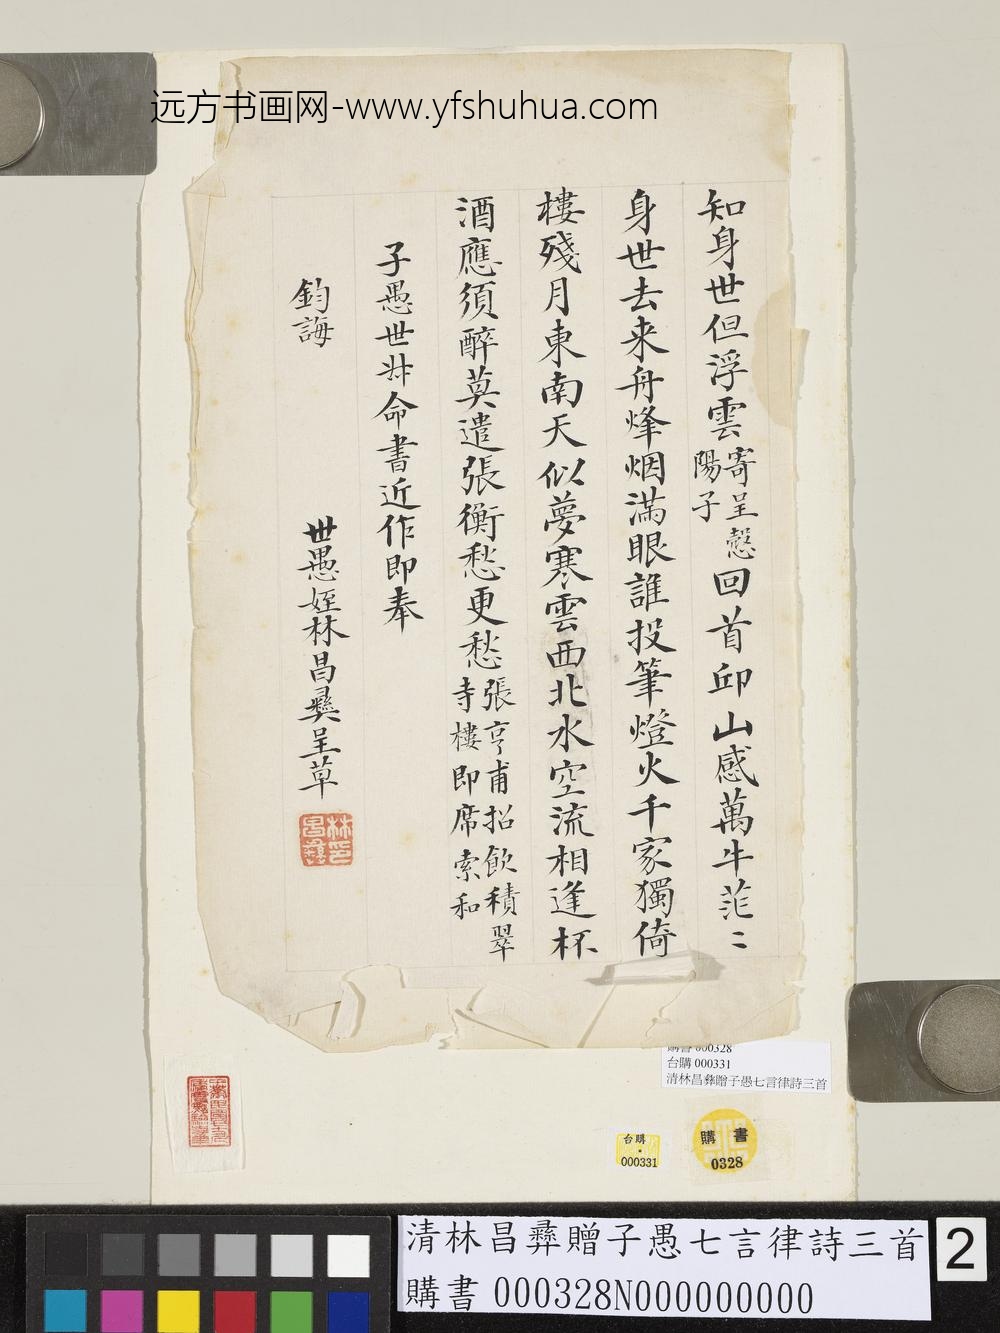 远方书画网-www.yfshuhua.com
知身世但浮雲寄呈慤陽子回首邱山感萬牛茫〻
身世去来舟烽烟滿眼誰投筆燈火千家獨倚
樓殘月東南天似夢寒雲西北水空流相逢杯
酒應須醉莫遣張衡愁更愁張亨甫招飲積翠寺樓即席索和
子愚世丼命書近作即奉
鈞誨
世愚姪林昌彝呈草
林昌彝印
購書 000328
台購 000331
清林昌彝贈子愚七言律詩三首
台購
000331
購書
0328
清林昌彝贈子愚七言律詩三首
購書 000328N000000000
2